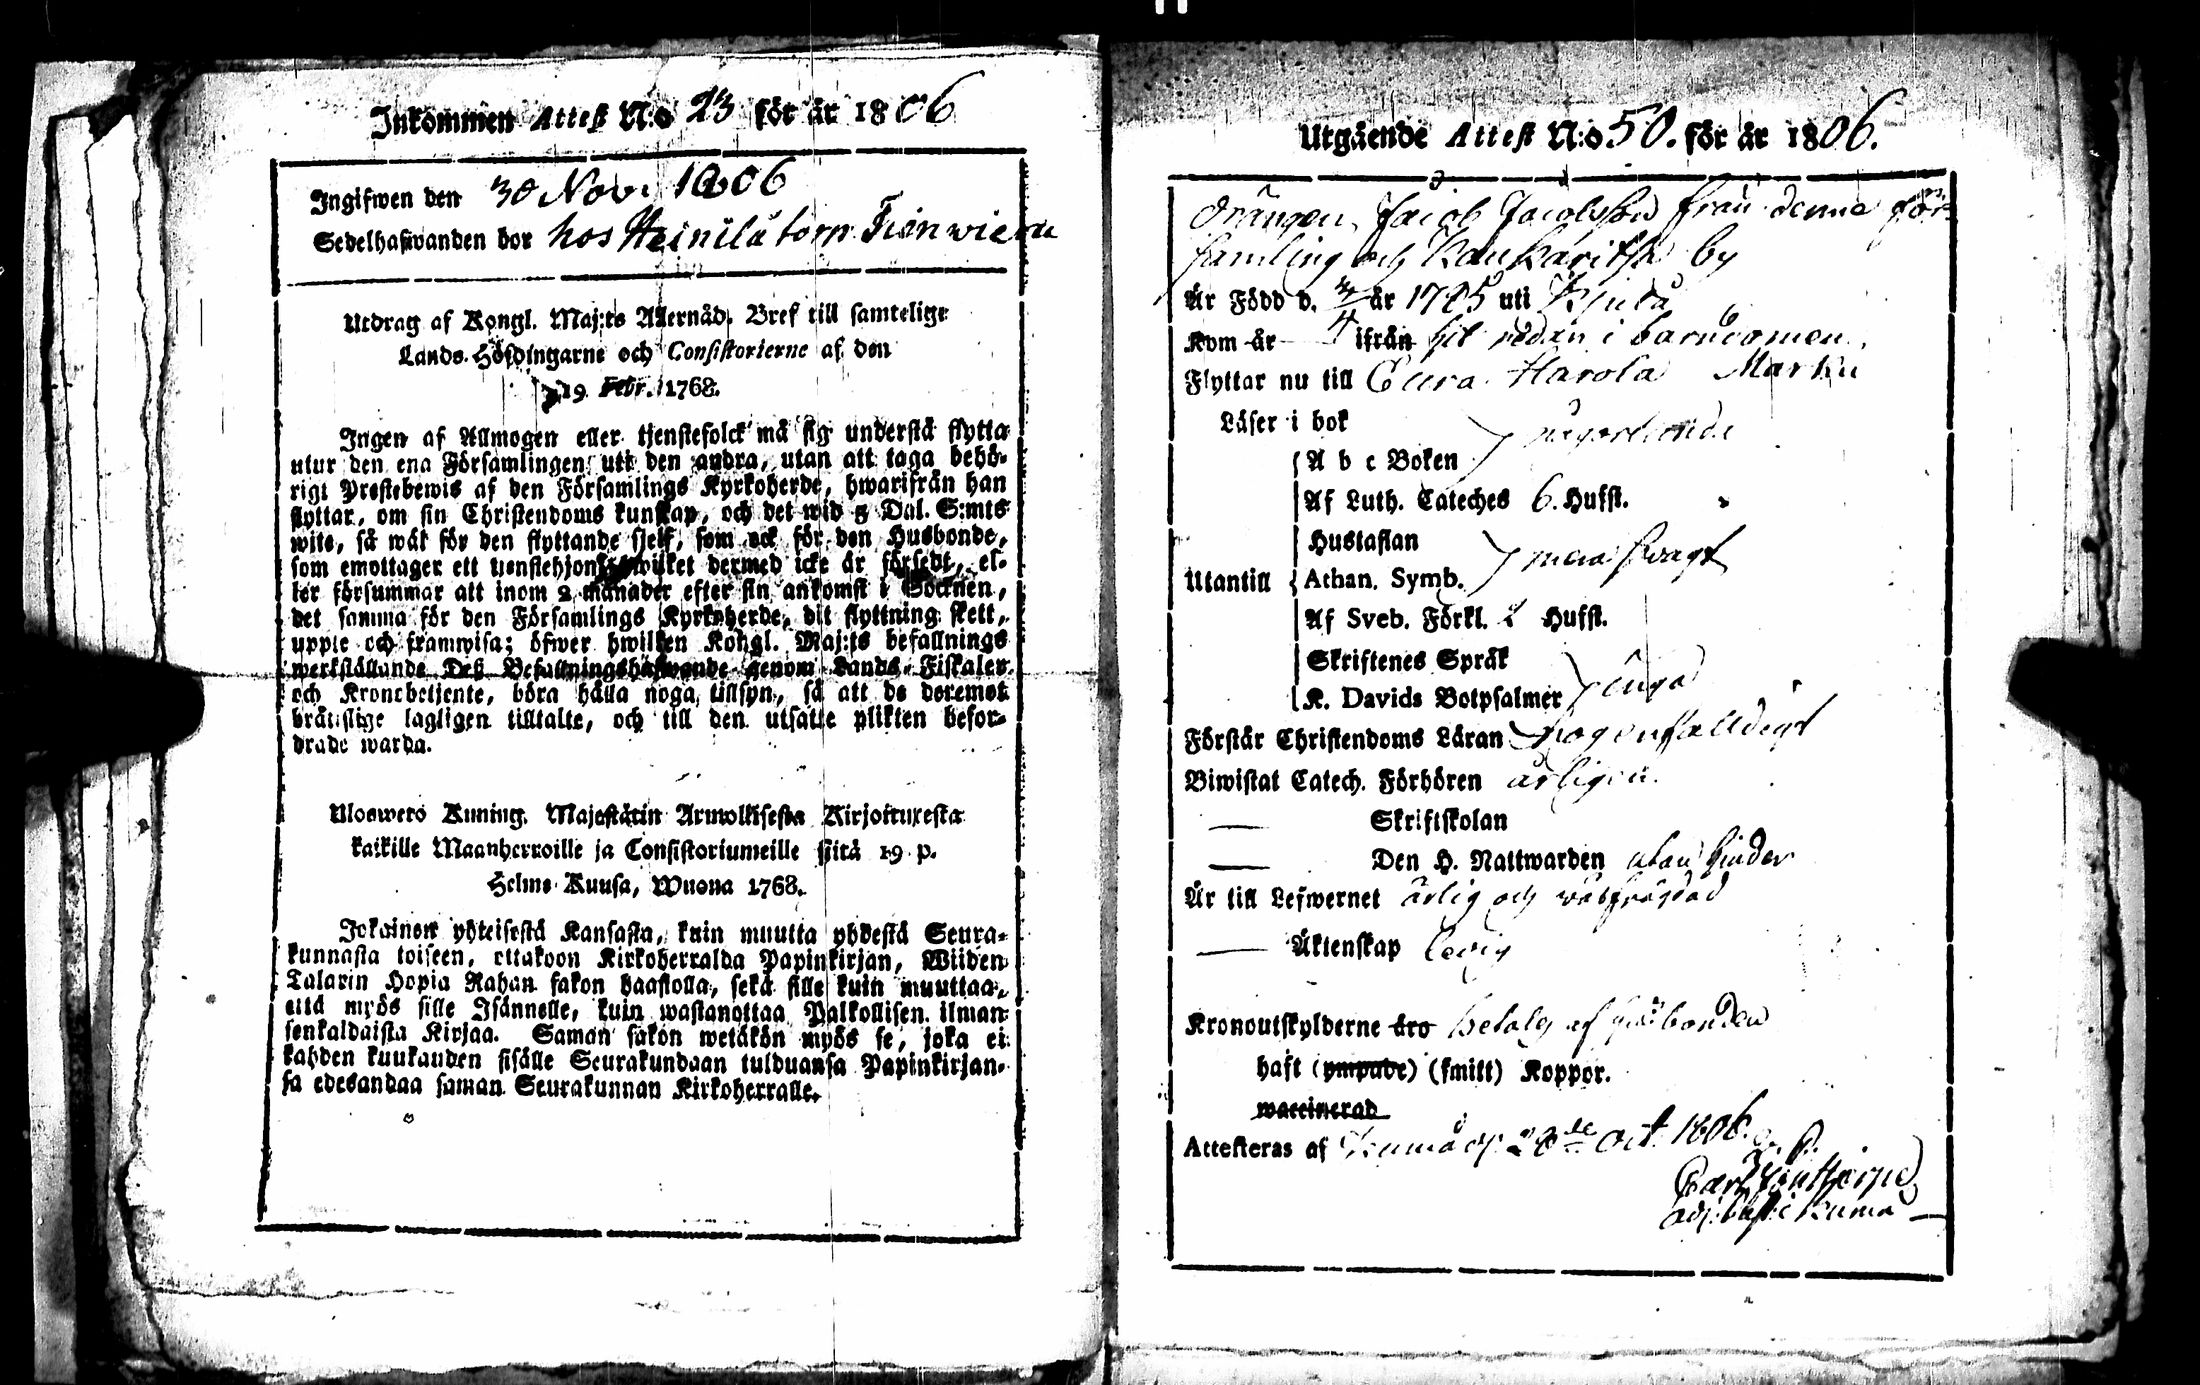 Inkommen Attest N:o 23 för år 1806
Ingifwen den 30 Nov. 1806
Sedelhafwanden bor hos Heinilä torp
Utdrag af Kongl. Maj:ts Allernåd. Bref till samtelige
Lands-Höfdingarne och Consistorierne af den
19 Febr. 1768.
Ingen af Allmogen eller tjenstefolck må sig understå flytta
utur den ena Församlingen uti den andra, utan att taga behö-
rigt Prestebewis af den Församlings Kyrkoherde, hwarifrån han
flyttar, om sin Christendoms kunskap, och det wid 5 Dal. S:mts
wite, så wäl för den flyttande sjelf, som ock för den Husbonde,
som emottager ett tienstehjon, hwilket dermed icke är försedt, el-
ler försummar att inom 2 månader efter sin ankomst i Socknen,
det samma för den Församlings Kyrkoherde, dit flyttning skett,
uppte och framwisa; öfwer hwilken Kongl. Maj:ts befallnings
werkställande Deß Befallningshafwande genom Lands-Fiskaler
och Kronobetjente, böra hålla noga tillsyn, så att de deremot
brättslige lagligen tilltalte, och till den utsatte plikten befor-
drade warda.
Uloswero Kuning. Majestätin Armollisesta Kirjoituxesta
kaikille Maanherroille ja Consistoriumeille siitä 19 p.
Helme-Kuusa, Wuona 1768.
Jokainen yhteisestä Kansasta, kuin muutta yhdestä Seura-
kunnasta toiseen, ottakoon Kirkoherralda Papinkirjan, Wiiden
Talarin Hopia Rahan sakon haastolla, sekä sille kuin muuttaa,
että myös sille Isännelle, kuin wastanottaa Palkollisen ilman
senkaldaista Kirjaa. Saman sakon wetäkön myös se, joka ei
kahden kuukauden sisälle Seurakundaan tulduansa Papinkirjan-
sa edesandaa saman Seurakunnan Kirkoherralle.
Utgående Attest N:o 50. för år 1806.
Drängen Jacob Jacobsson från denna för-
samling och Kaukaritsa by
Är Född d. år 1785 uti Kjulo
Kom år ifrån hit redan i barndomen.
Flyttar nu till Eura Harola
Läser i bok
A b c Boken
Af Luth. Cateches 6. Hufst.
Hustaflan
Utantill Athan. Symb. svagt
Af Sveb. Förkl. 2 Hufst.
Skriftenes Språk
K. Davids Botpsalmer inga
Förstår Christendoms Läran
Biwistat Catech. Förhören årligen.
— Skriftskolan
— Den H. Nattwarden utan hinder
Är till Lefwernet ärlig och
— Äktenskap ledig
Kronoutskylderne äro betalas af husbonden
haft (ympade) (smitt) Koppor.
waccinerad
Attesteras af Kumo d. 28de Oct. 1806.
Carl
i Kumo